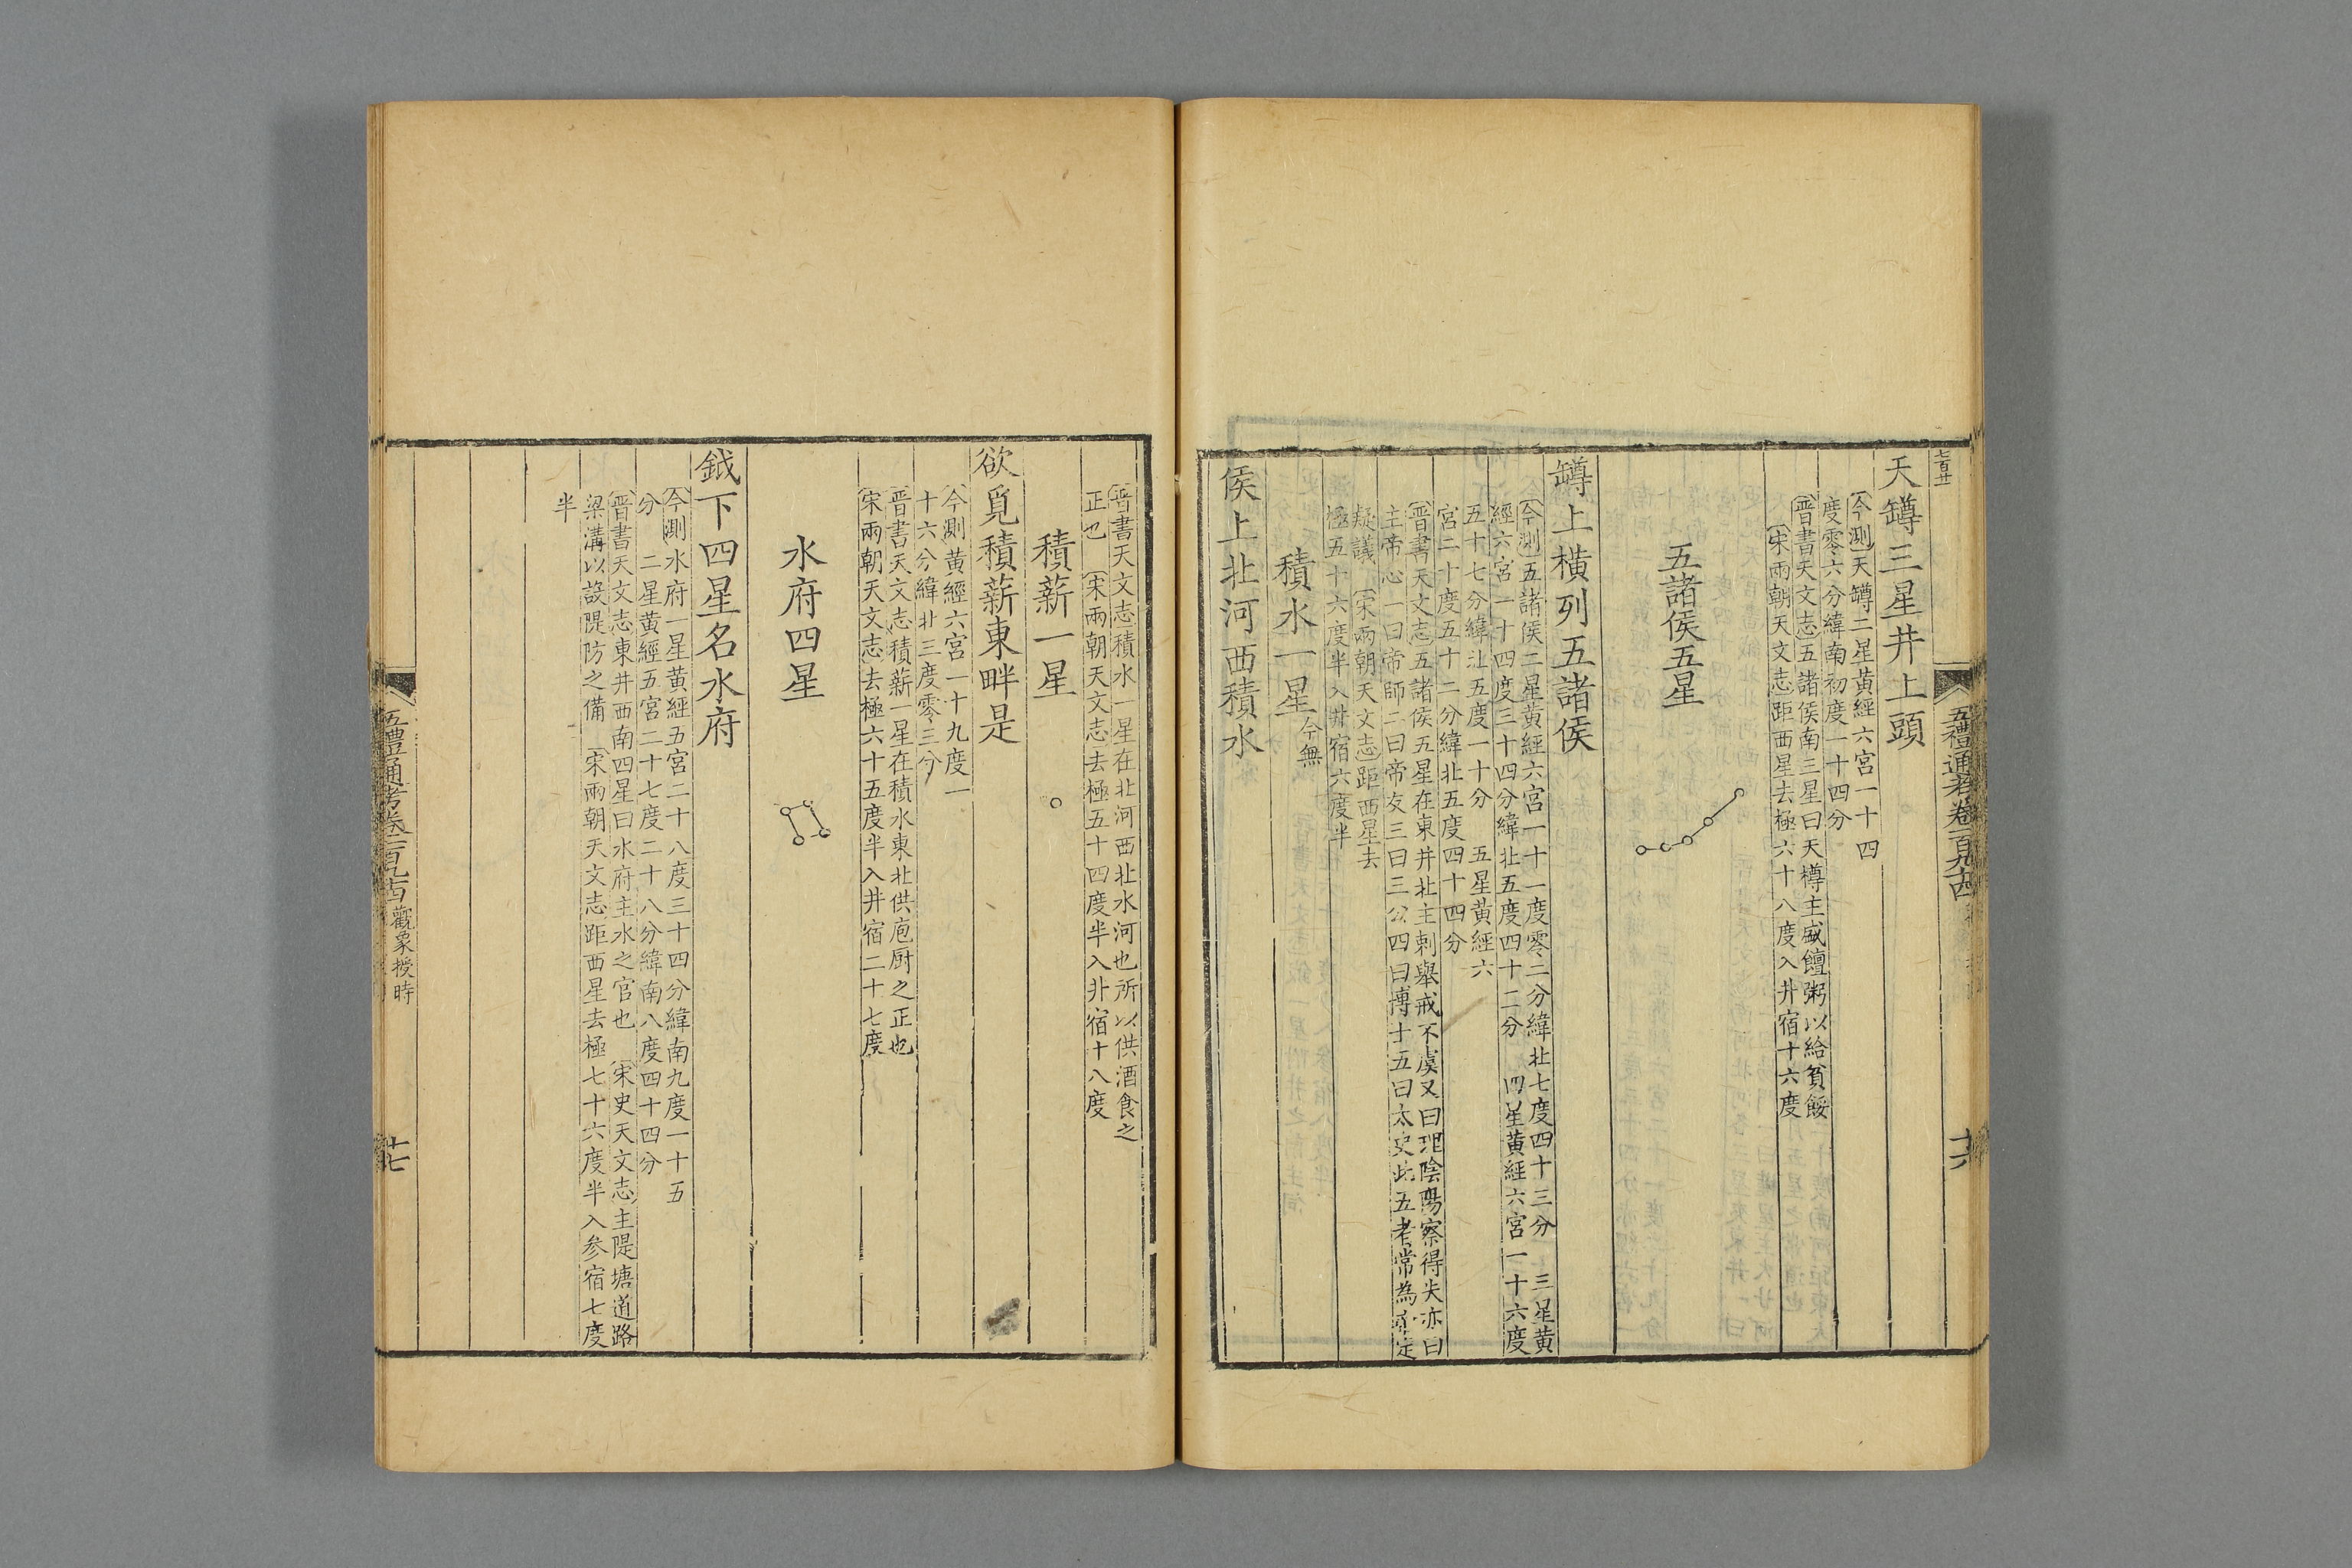 七百廿
五禮通考卷一百九十四
十六
天罇三星井上頭
今測天罇二星黃經六宮一十四
度零六分緯南初度一十四分
晉書天文志五諸侯南三星曰天樽主盛饘粥以給貧餒
宋兩朝天文志距西星去極六十八度入井宿十六度
五諸侯五星
罇上橫列五諸侯
今測五諸侯二星黃經六宮一十一度零二分緯北七度四十三分 三星黃
經六宮一十四度三十四分緯北五度四十二分 四星黃經六宮一十六度
五十七分緯北五度一十分 五星黃經六
宮二十度五十二分緯北五度四十四分
晉書天文志五諸侯五星在東井北主刺舉戒不虞又曰理陰陽察得失亦曰
主帝心一曰帝師二曰帝友三曰三公四曰博士五曰太史此五者常為帝定
疑議 宋兩朝天文志距西星去
極五十六度半入井宿六度半
積水一星今無
侯上北河西積水
晉書天文志積水一星在北河西北水河也所以供酒食之
正也 宋兩朝天文志去極五十四度半入井宿十八度
積薪一星
欲覓積薪東畔是
今測黃經六宮一十九度一
十六分緯北三度零三分
晉書天文志積薪一星在積水東北供庖厨之正也
宋兩朝天文志去極六十五度半入井宿二十七度
水府四星
鉞下四星名水府
今測水府一星黃經五宮二十八度三十四分緯南九度一十五
分 二星黃經五宮二十七度二十八分緯南八度四十四分
晉書天文志東井西南四星曰水府主水之官也 宋史天文志主隄塘道路
梁溝以設隄防之備 宋兩朝天文志距西星去極七十六度半入参宿七度
半
五禮通考卷一百九十四 觀象授時
十七